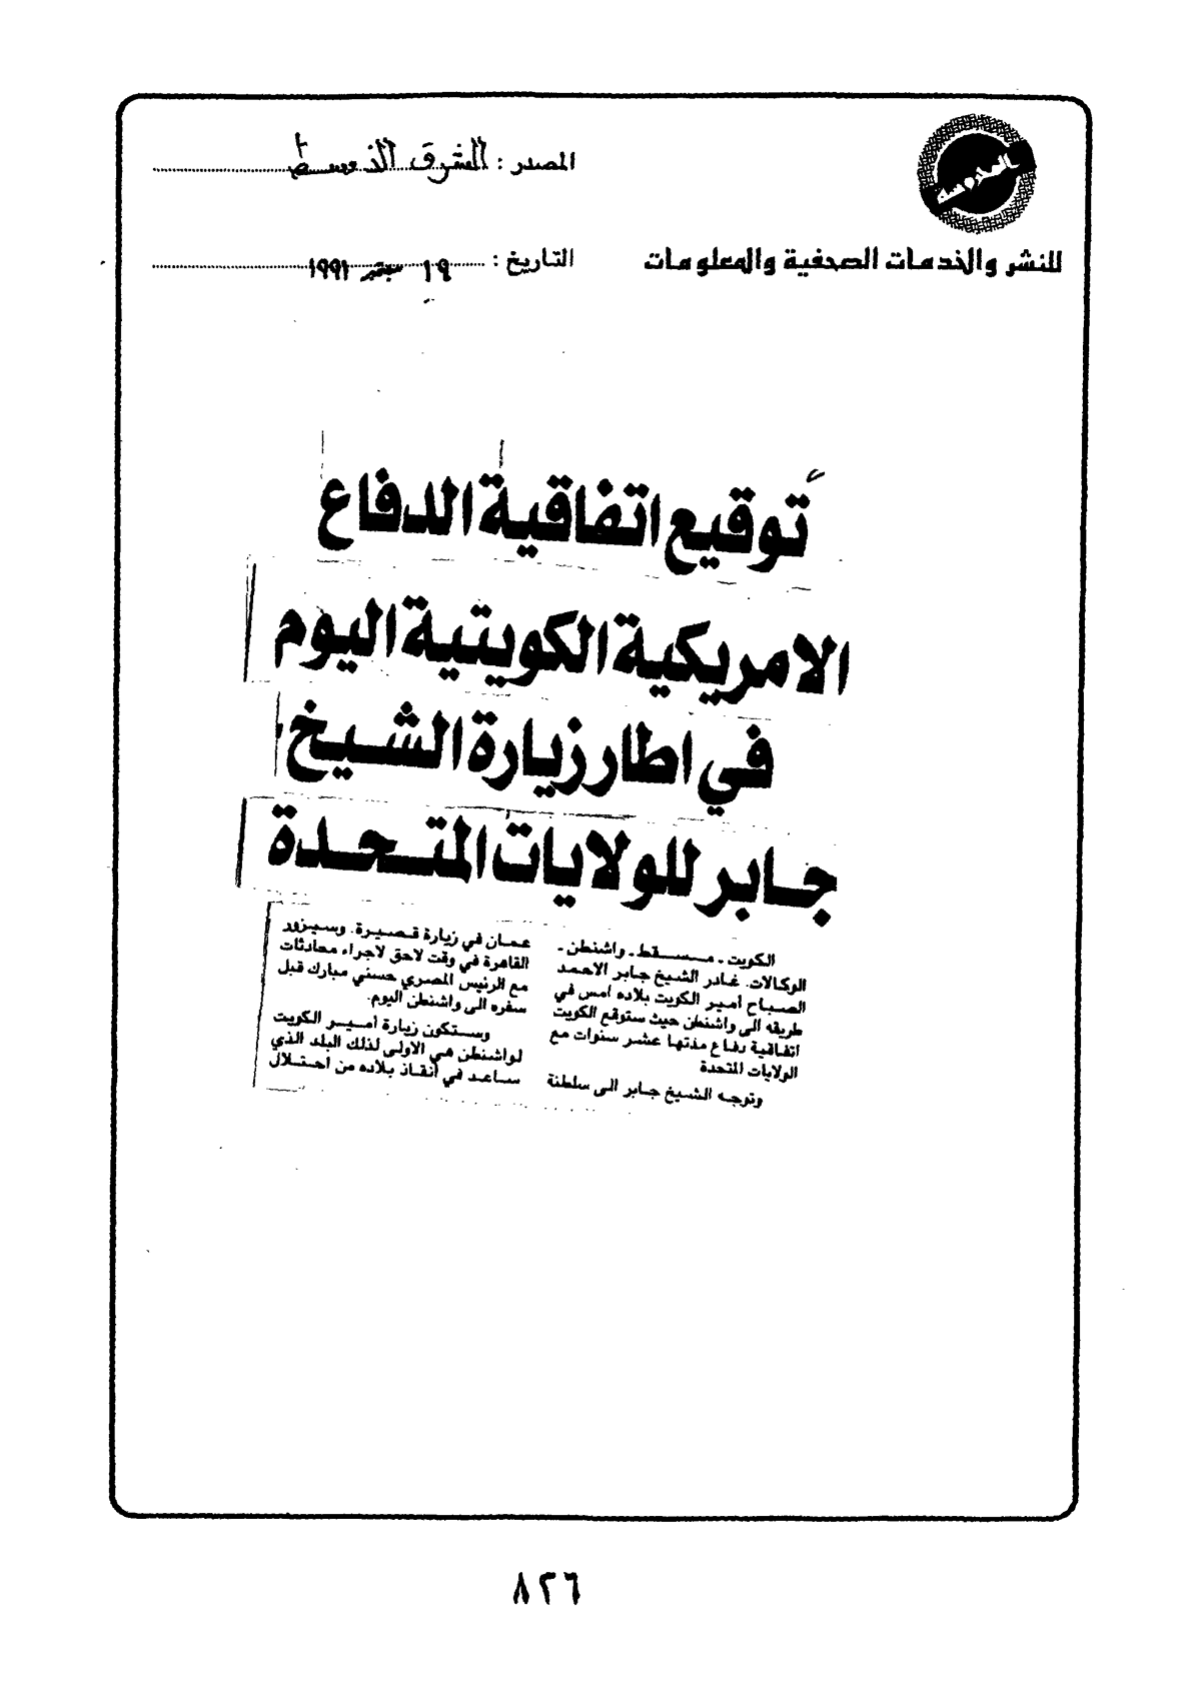 المصدر : الشرق الاوسط
للنشر والخدمات الصحفية والمعلومات
التاريخ : ١٩ سبتمبر ١٩٩١
توقيع اتفاقية الدفاع
الامريكية الكويتية اليوم
في اطار زيارة الشيخ
جابر للولايات المتحدة
الكويت - مسقط - واشنطن -
الوكالات. غادر الشيخ جابر الاحمد
الصباح أمير الكويت بلاده امس في
طريقه الى واشنطن حيث ستوقع الكويت
اتفاقية دفاع مدتها عشر سنوات مع
الولايات المتحدة
وتوجه الشيخ جابر الى سلطنة
عمان في زيارة قصيرة. وسيزور
القاهرة في وقت لاحق لاجراء محادثات
مع الرئيس المصري حسني مبارك قبل
سفره الى واشنطن اليوم.
وستكون زيارة أمير الكويت
لواشنطن هي الاولى لذلك البلد الذي
ساعد في انقاذ بلاده من احتلال
٨٢٦